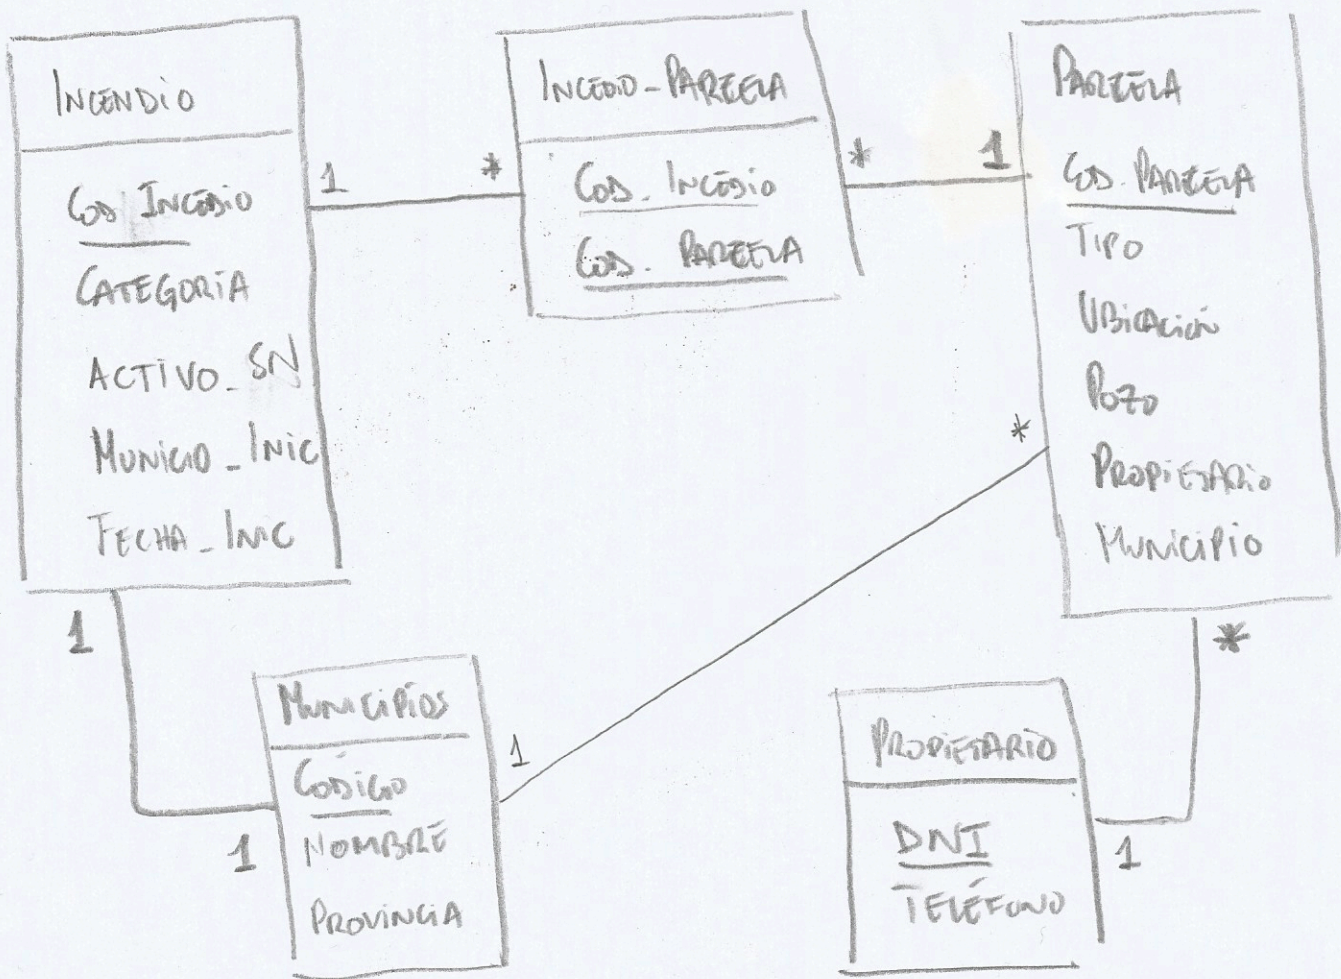 INCENDIO
COD INCEDIO
CATEGORIA
ACTIVO_SN
MUNICIO_INIC
FECHA_INIC
1
*
INCEDIO-PARCELA
COD_INCEDIO
COD. PARCELA
*
1
PARCELA
COD. PARCELA
TIPO
UBICACIÓN
POZO
PROPIETARIO
MUNICIPIO
*
1
1
MUNICIPIOS
CÓDIGO
NOMBRE
PROVINCIA
1
*
PROPIETARIO
DNI
TELÉFONO
1